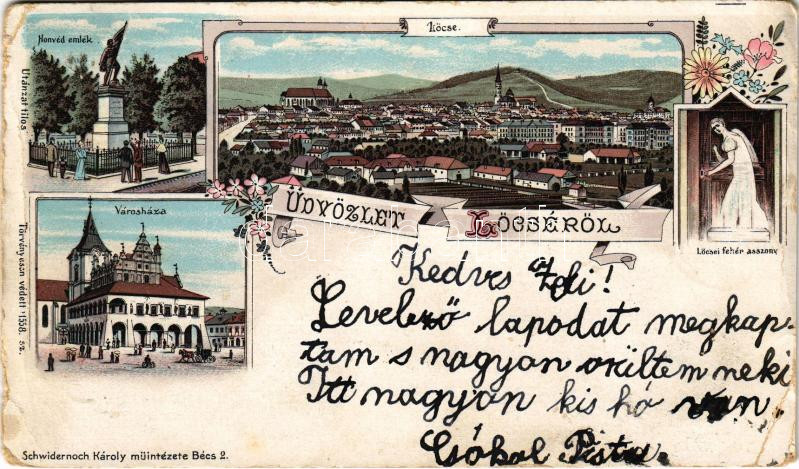 Honvéd emlék
Lőcse.
Utánzat tilos
Törvényesen védett 1558. sz.
Városháza
ÜDVÖZLET LŐCSÉRŐL
Lőcsei fehér asszony
Kedves Zoli!
Levelező lapodat megkap-
tam s nagyon örültem neki
Itt nagyon kis hó van.
Csókol Pista.
Schwidernoch Károly müintézete Bécs 2.